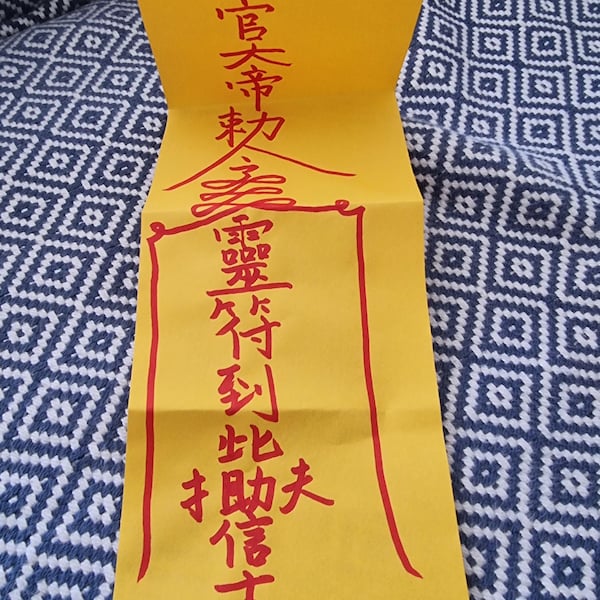 官大帝勅令
靈符到此
扌助夫
信